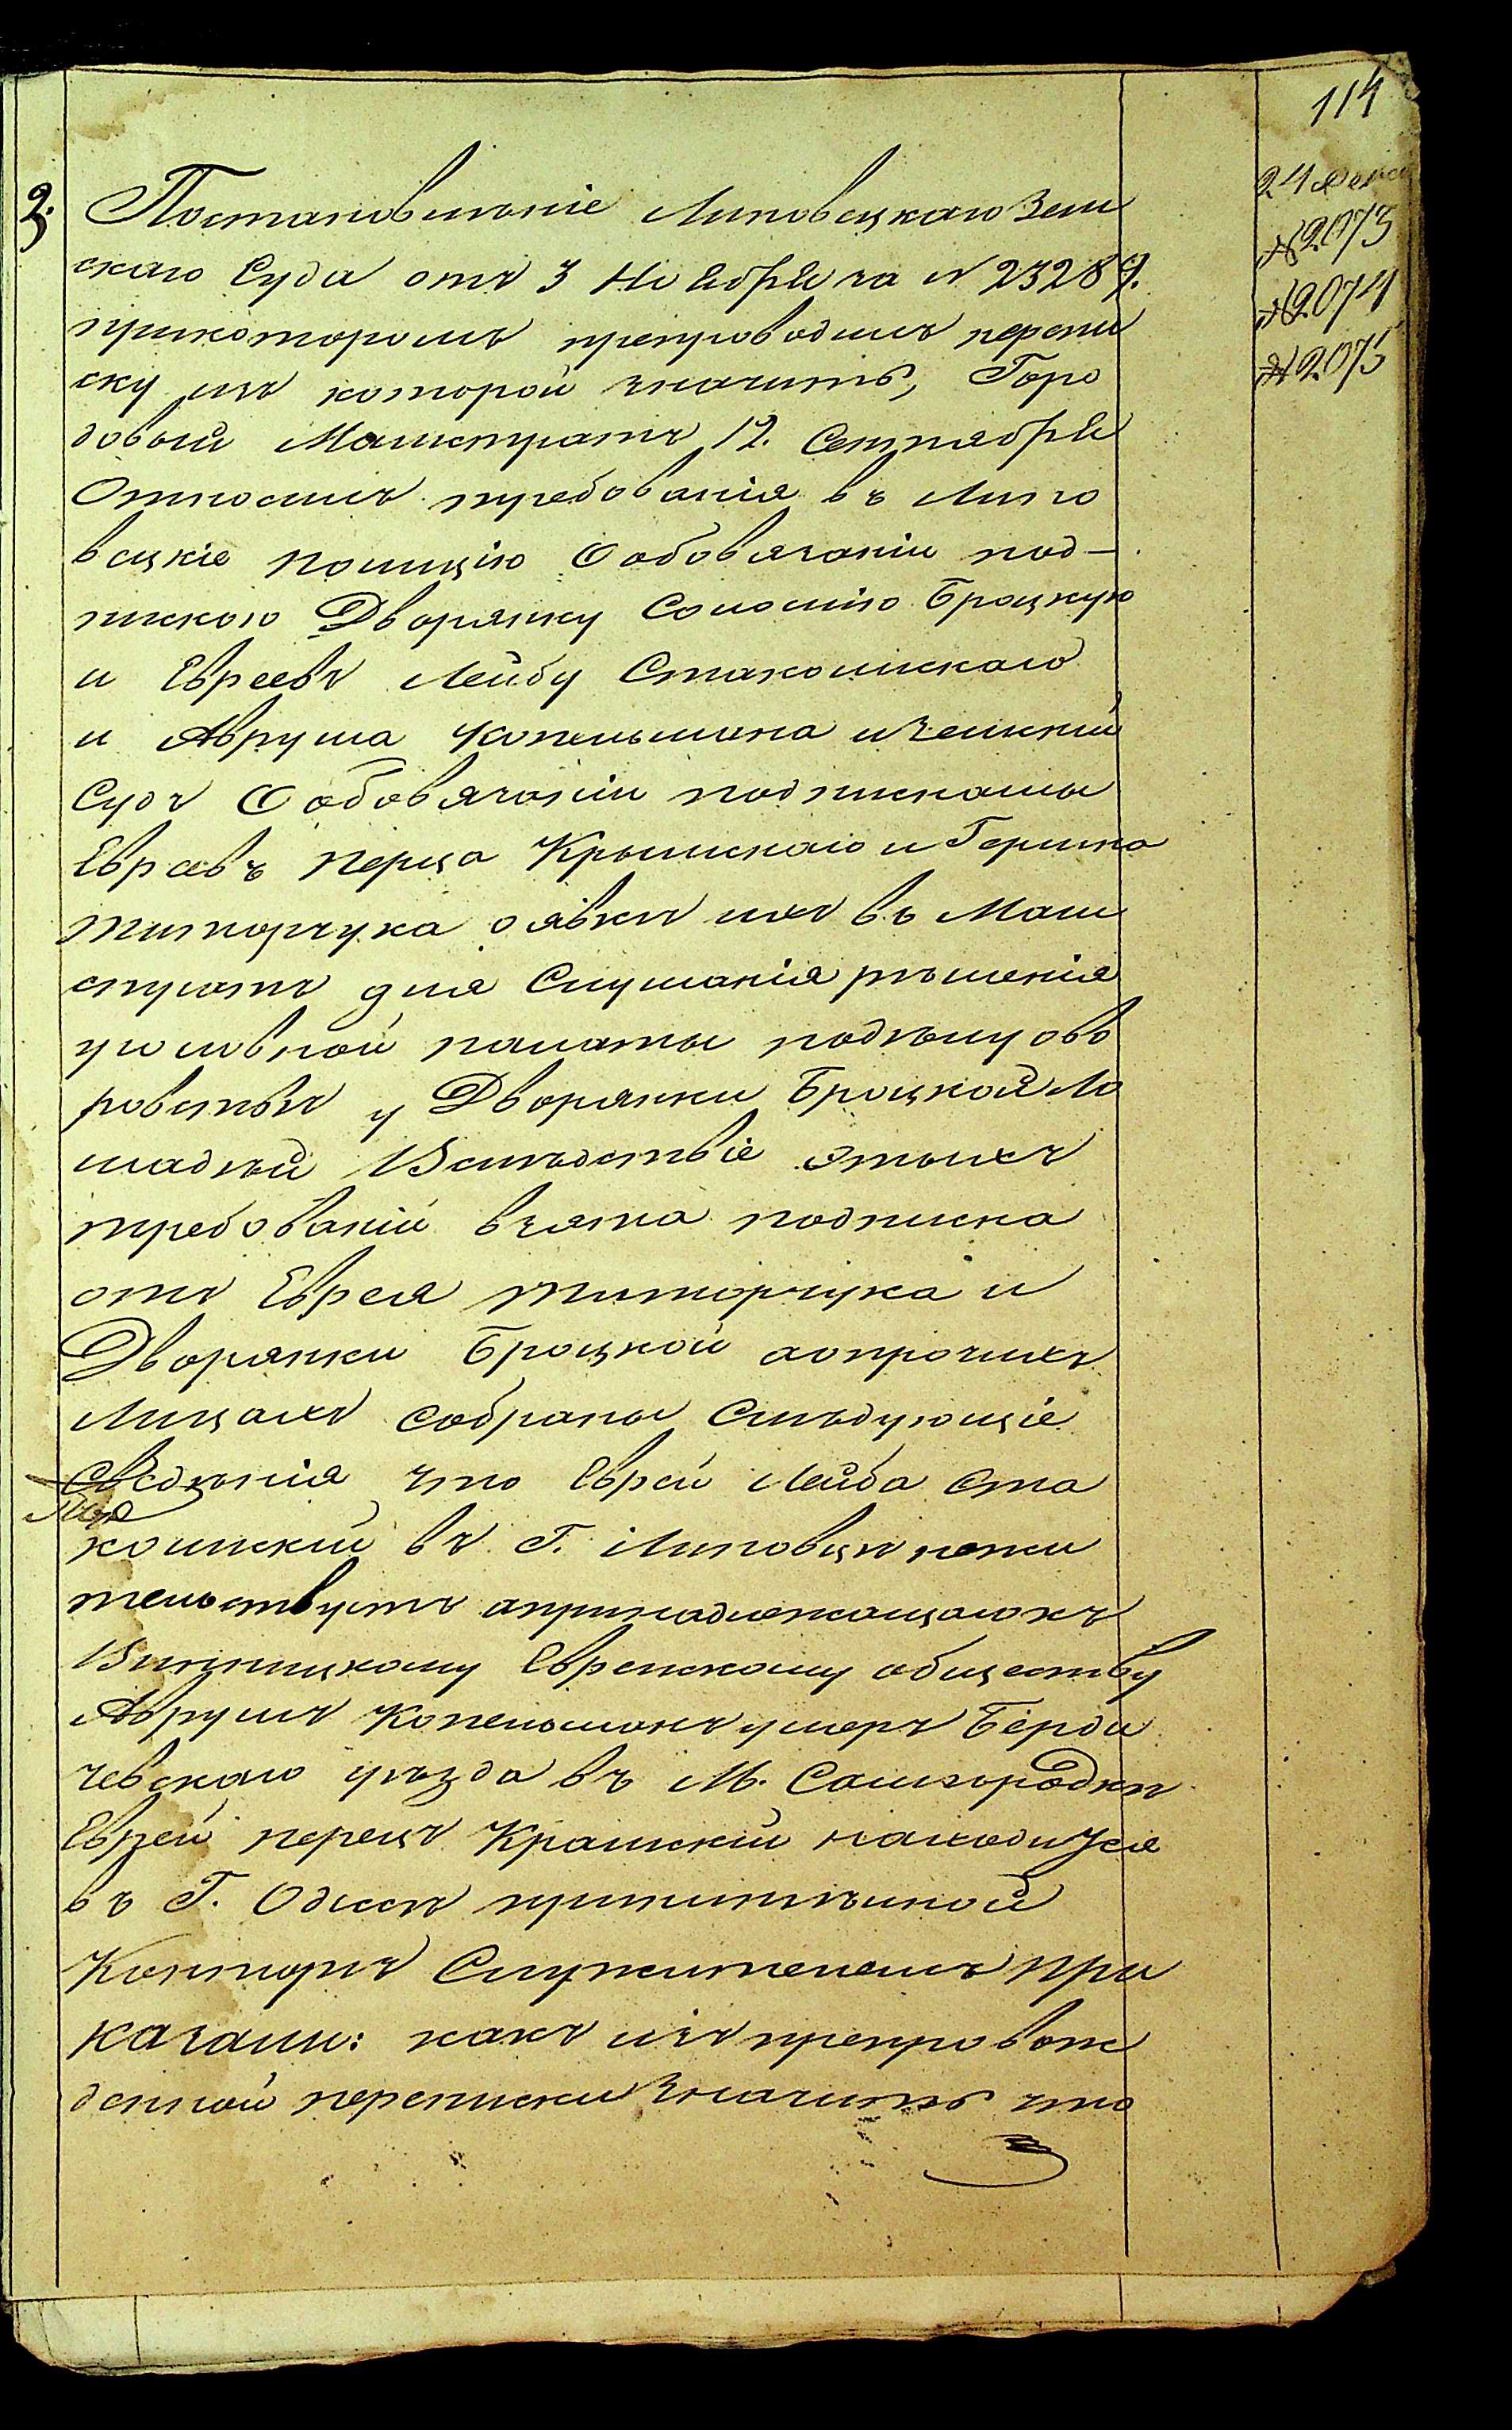 114
24 Декаб
№ 2073
№ 2074
№ 2075
2. Постановленіе Липовецкаго Зем
скаго Суда отъ 3 Ноября за № 23289.
прикоторомъ препроводилъ перепи
ску изъ которой значитъ, Горо
довый Магистратъ 12. Сентября
Относилъ требованія въ Липо
вецкіе полицію Ообовязаніи под-
пискою Дворянку Соломію Броцкую
и Евреевъ Лейбу Стаколискаго
и Аврума Копельмана и Земкий
Судъ Ообовязаніи подпискамы
Евреевъ перца Крымскаго и Гершка
титорчука оявки ихъ въ Маги
стратъ для Слушанія рѣшенія
уголовной палаты поделу ово
ровствѣ у Дворянки Броцкой ло
шадей Вслѣдствіе этыхъ
требованій взята подписка
отъ Еврея титорчука и
Дворянки Броцкой аопрочихъ
лицахъ собраны Слѣдующіе
Сведѣнія что Еврей Лейба Ста
колиский въ Г. Липовцѣ нежи
тельствуетъ апринадлежащаго къ
Винницкому Еврейскому обществу
Аврумъ Копельманъ умеръ Берди
чевскаго уѣзда въ М. Самгородкѣ
Еврей перецъ Крамский находится
въ Г. Одессѣ припитейной
Конторѣ Служителемъ при
казали: какъ изъ препровож
денной переписки Значитъ что